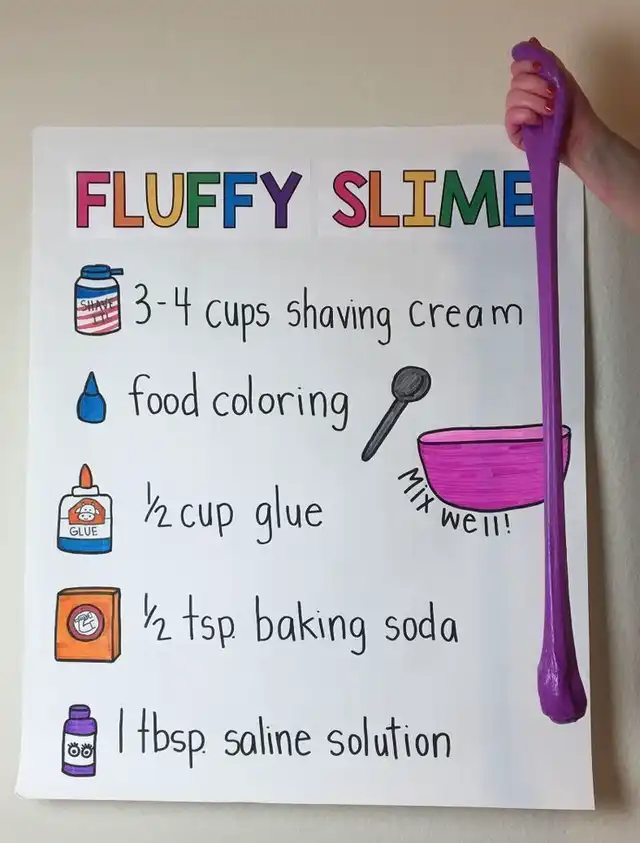 FLUFFY SLIME
SHAVE
3-4 cups shaving cream
food coloring
Mix well!
GLUE
½ cup glue
½ tsp. baking soda
1 tbsp. saline solution